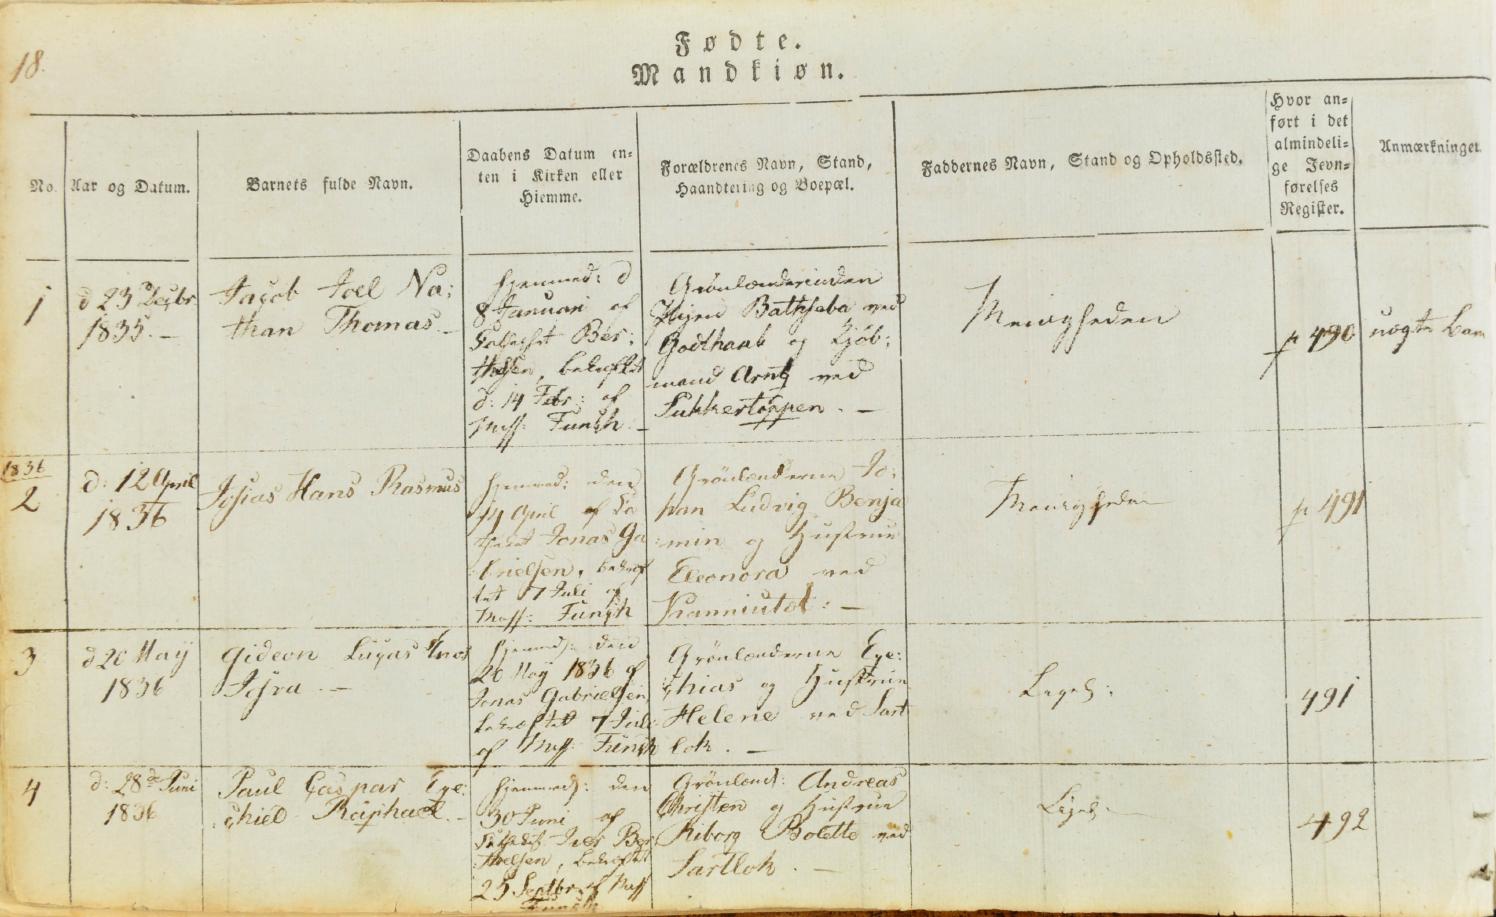 18.
Fødte.
Mandkiøn.
No.
Aar og Datum.
Barnets fulde Navn.
Daabens Datum en-
ten i Kirken eller
Hiemme.
Forældrenes Navn, Stand,
Haandtering og Boepæl.
Faddernes Navn, Stand og Opholdssted.
Hvor an-
ført i det
almindeli-
ge Jevn-
førelses
Register.
Anmærkninger
1
d 23 Decbr
1835. -
Jacob Joel Na:
than Thomas -
hjemmed: d
8 Januari af
Ber:
thelsen, bekræftet
d: 14 Febr: af
Miss: Funch -
Grönlænderinden
Pigen Bathseba ved
Godthaab og Kjöb:
mand ved
Sukkertoppen. -
Menigheden
p 490
uægte Barn
1836
2
d: 12 April
1836
Josias Hans Rasmus
hjemmed: den
14 April af
Jonas Ga
brielsen, bekræf
tet 7 Juli af
Miss: Funch
Grönlænderne Jo:
han Ludvig Benja
min og Hustrue
Eleonora ved
: -
Menigheden
p 491
3
d 20 May
1836
Gideon Lucas
-
hjemmed: den
20 May 1836 af
Jonas Gabrielsen
bekræftet 7 Juli
af Miss: Funch
Grönlænderne Eze:
chias og Hustrue
Helene ved Sart
lok. -
Ligel:
491
4
d: 28de Juni
1836
Paul Caspar Eze:
chiel Raphael. -
hjemmed: den
30 Juni af
Iver Ber
thelsen, bekræftet
25 Septbr af Miss
Funch
Grönlænd: Andreas
Christen og Hustrue
Kiborg Bolette ved
Sartlok. -
Ligel:
492